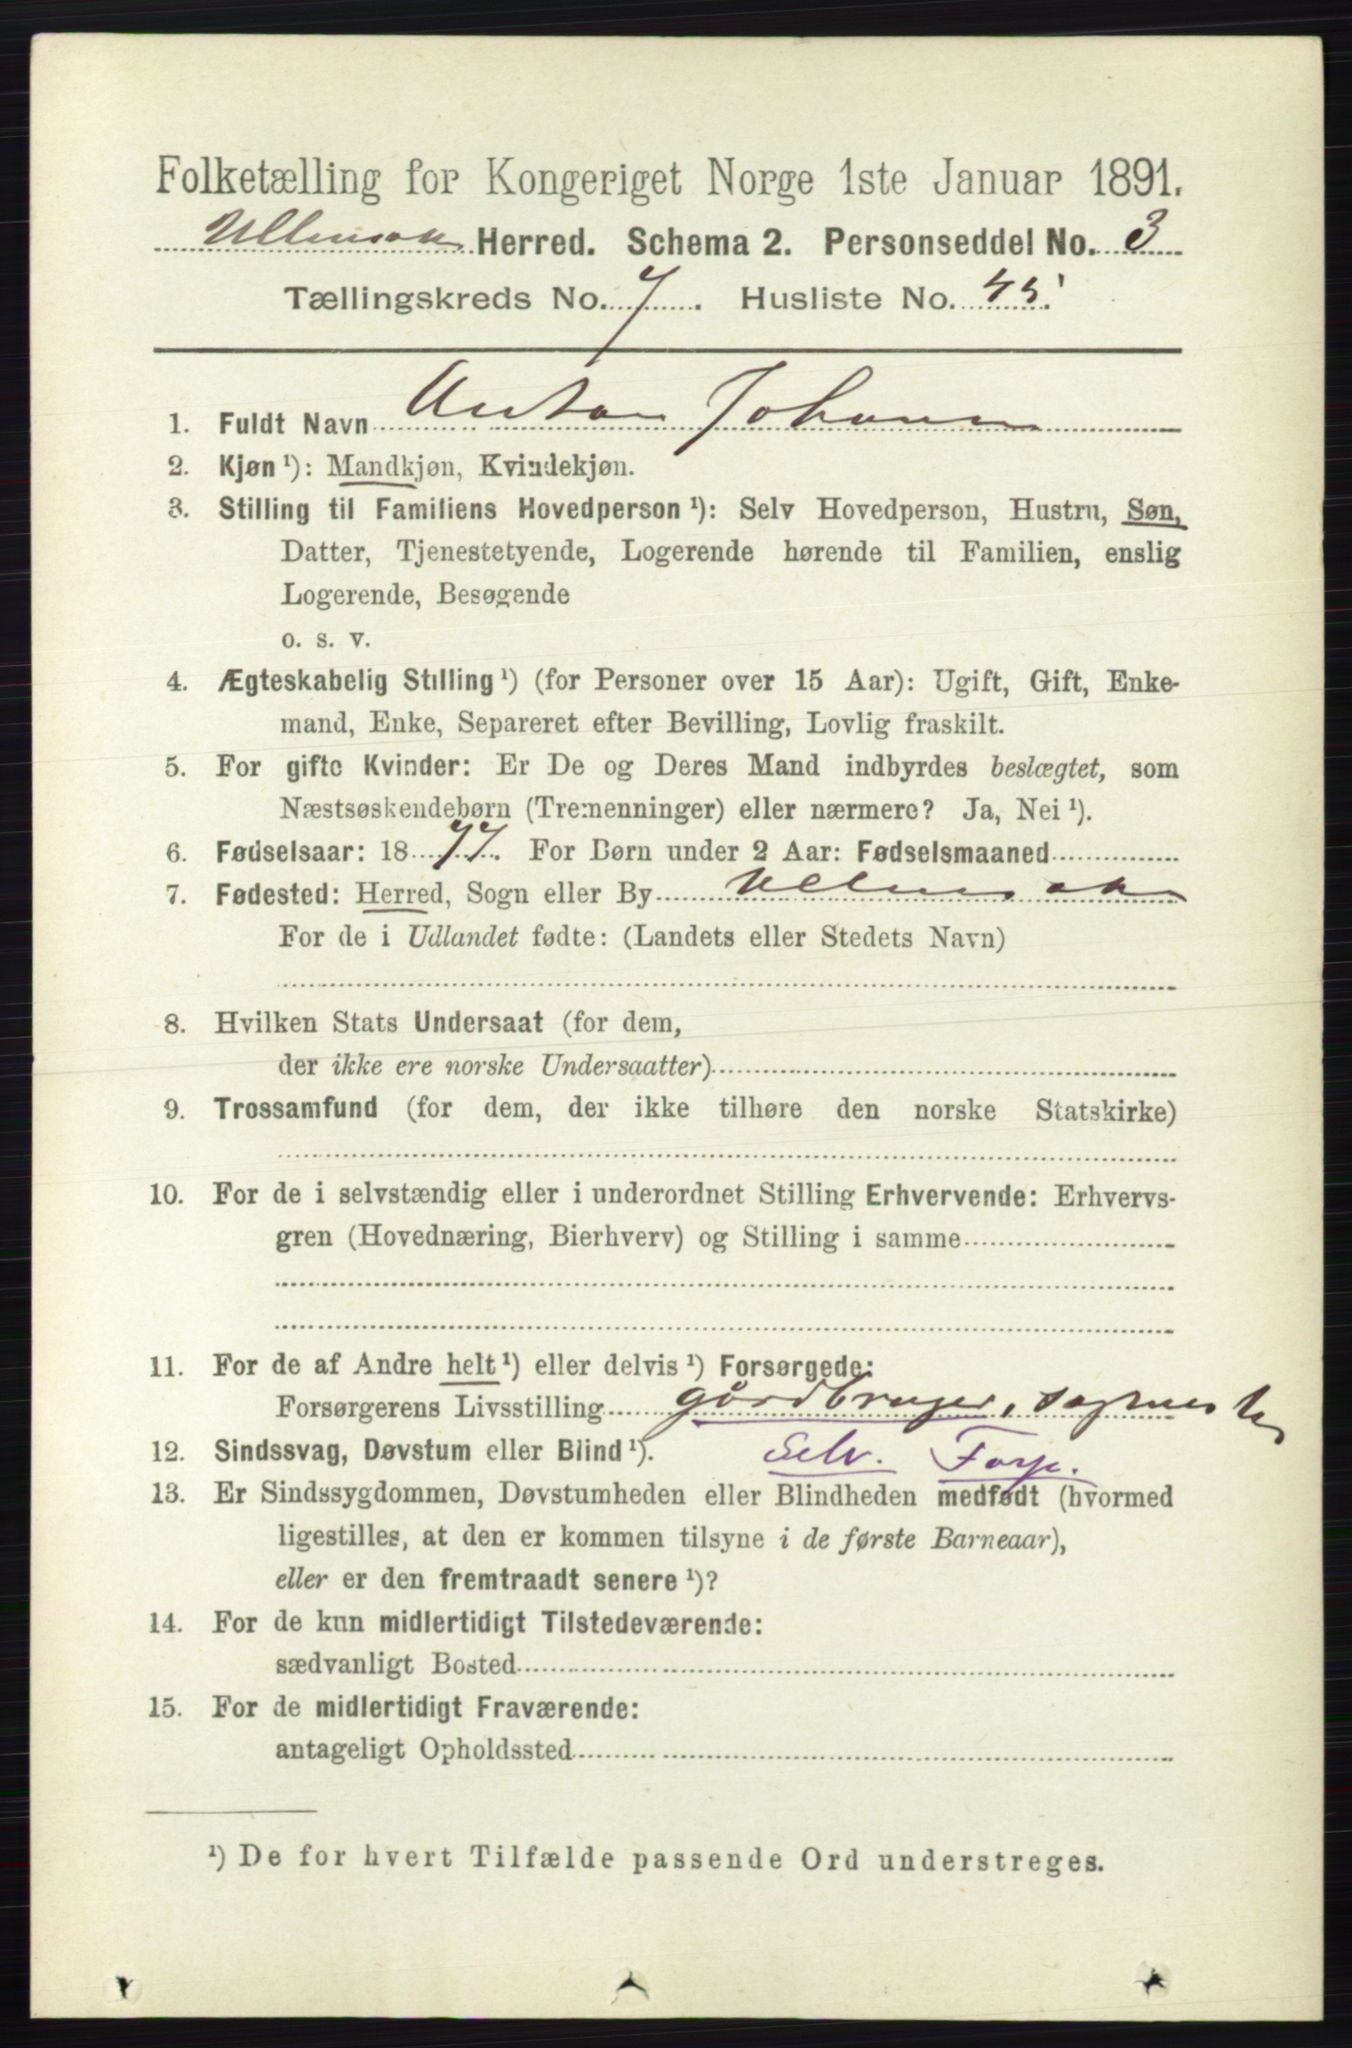 Folketælling for Kongeriget Norge 1ste Januar 1891.
Ullensak Herred. Schema 2. Personseddel No. 3
Tællingskreds No. 7. Husliste No. 45.
1. Fuldt Navn Anton Johann
2. Kjøn ¹): Mandkjøn, Kvindekjøn.
3. Stilling til Familiens Hovedperson ¹): Selv Hovedperson, Hustru, Søn,
Datter, Tjenestetyende, Logerende hørende til Familien, enslig
Logerende, Besøgende
o. s. v.
4. Ægteskabelig Stilling ¹) (for Personer over 15 Aar): Ugift, Gift, Enke-
mand, Enke, Separeret efter Bevilling, Lovlig fraskilt.
5. For gifte Kvinder: Er De og Deres Mand indbyrdes beslægtet, som
Næstsøskendebørn (Tremenninger) eller nærmere? Ja, Nei ¹).
6. Fødselsaar: 18 77. For Børn under 2 Aar: Fødselsmaaned
7. Fødested: Herred, Sogn eller By Ullensak
For de i Udlandet fødte: (Landets eller Stedets Navn)
8. Hvilken Stats Undersaat (for dem,
der ikke ere norske Undersaatter)
9. Trossamfund (for dem, der ikke tilhøre den norske Statskirke)
10. For de i selvstændig eller i underordnet Stilling Erhvervende: Erhvervs-
gren (Hovednæring, Bierhverv) og Stilling i samme
11. For de af Andre helt ¹) eller delvis ¹) Forsørgede:
Forsørgerens Livsstilling gårdbruger,
12. Sindssvag, Døvstum eller Blind ¹). Selv. Forp.
13. Er Sindssygdommen, Døvstumheden eller Blindheden medfødt (hvormed
ligestilles, at den er kommen tilsyne i de første Barneaar),
eller er den fremtraadt senere ¹)?
14. For de kun midlertidigt Tilstedeværende:
sædvanligt Bosted
15. For de midlertidigt Fraværende:
antageligt Opholdssted
¹) De for hvert Tilfælde passende Ord understreges.